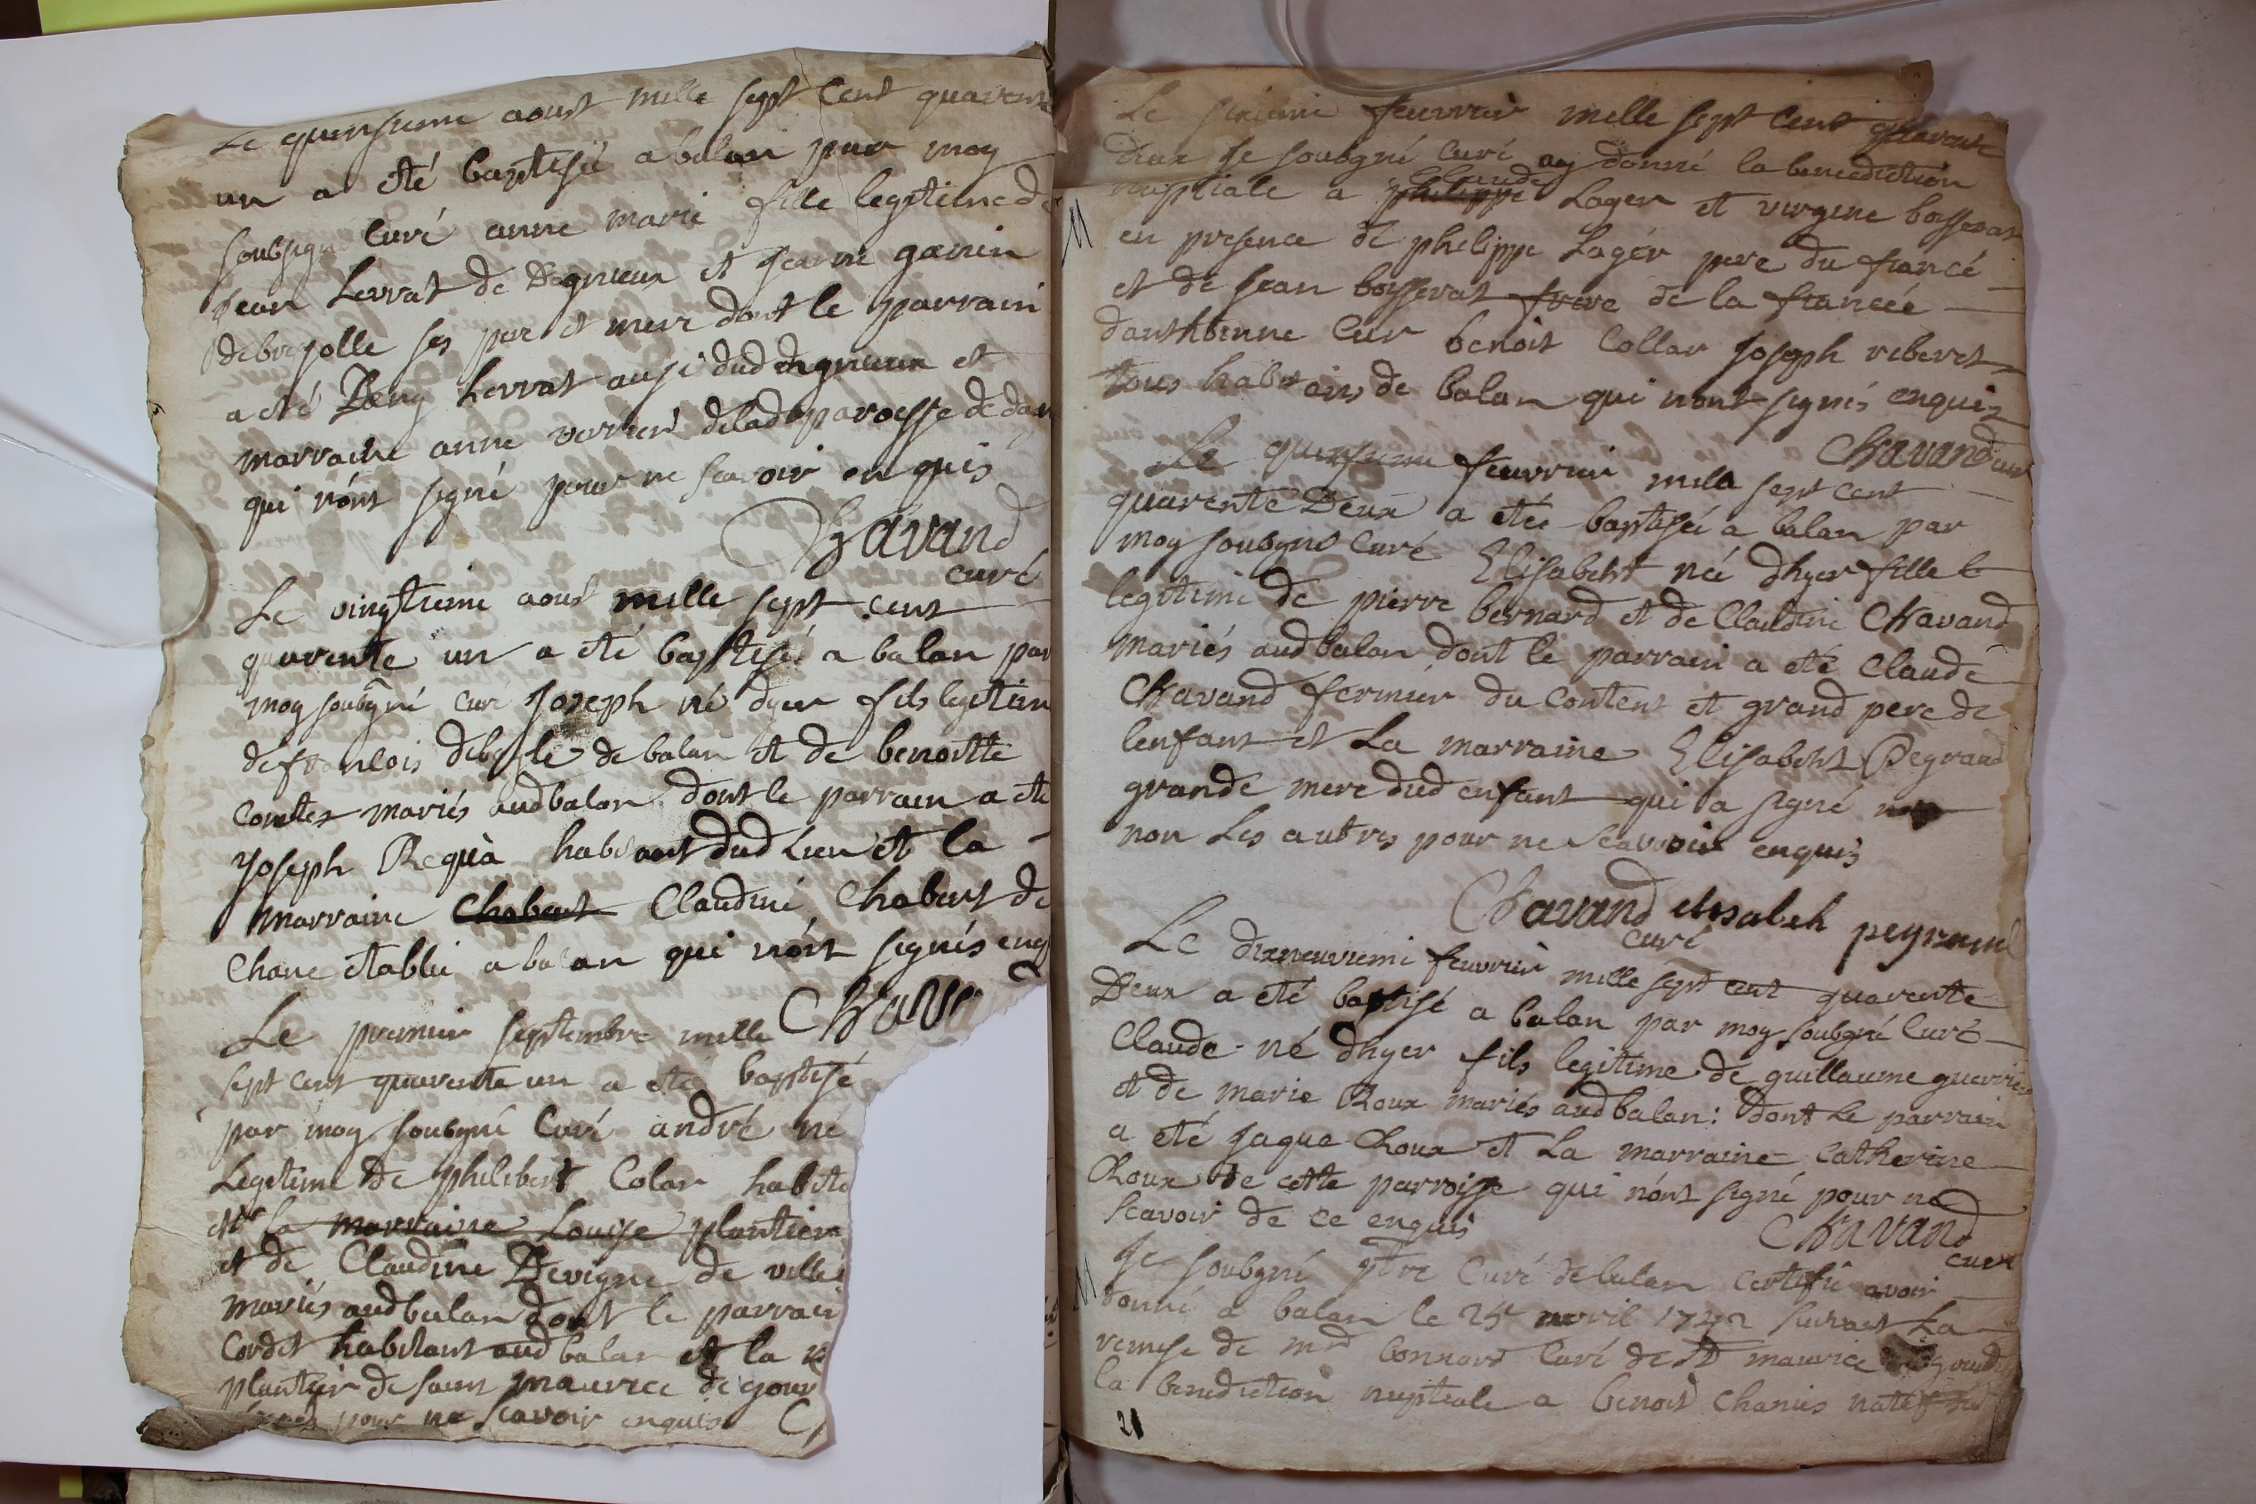 Le quinsieme aoust mille sept cent quarente
un a eté baptisée a balan par moy
soubsigné curé anne marie fille legitime de
jean Lerrat de Dagnieux et jeanne ganin
ses pere et mere dont le parrain
a eté Lerrat ausi dud dagnieux et
marraine anne verrier delad paroisse de dag
qui n'ont signé pour ne scavoir enquis
Chavand
curé
Le vingtieme aoust mille sept cent
quarente un a eté baptisé a balan par
moy soubgné curé joseph né dyer fils legitim
de francois de balan et de benoitte
comtes mariés aud balan dont le parrain a eté
joseph Requà habitant dud Lieu et la
marraine Chabert Claudine Chabert de
Chane etablie a balan qui n'ont signés enq
Chav
Le premier septembre mille
sept cent quarente un a eté baptisé
par moy soubgné Curé andré né
Legitime de philibert Colar habita
et la marraine Louise plantier
et de Claudine Devigne de ville
mariés aud balan dont le parrain
Cordet habitant aud balan et la m
plantier de saint maurice de gour
signés pour ne scavoir enquis C
Le feuvrier mille sept cent quarante
Deux je soubgné curé ay donné la benediction
nuptiale a philippe Claude Lager et virgine bosserat
en presence de philippe Lager pere du fiancé
et de jean bosserat frere de la fiancée
danthoinne Cur benoit Collar joseph reberet
tous habitans de balan qui n'ont signés enquis
Chavand curé
Le quinsieme feuvrier mille sept cent
quarente Deux a etée baptisée a balan par
moy soubgné curé Elisabeht née dhyer fille
legitime de pierre bernard et de Claudine Chavand
mariés aud balan dont le parrain a eté Claude
Chavand fermier du Content et grand pere de
lenfant et La marraine Elisabeht Pegrand
grande mere dud enfant qui a signé
non Les autres pour ne scavoir enquis
Chavand elisabeh peyraud
curé
Le dixneuvieme feuvrier mille sept cent quarente
Deux a eté baptisé a balan par moy soubgné Curé
Claude né dhyer fils legitime de guillaume guerrier
et de marie Roux mariés aud balan: dont Le parrain
a eté jaque Roux et La marraine Catherine
Roux de cette parroisse qui n'ont signé pour ne
scavoir de ce enquis
Chavand
curé
Je soubgné ptre Curé de balan certifie avoir
donné a balan le 25e avril 1742 suivant La
remise de mrd bonnard Curé de St maurice
la benediction nuptiale a benoit Chanies natif
21